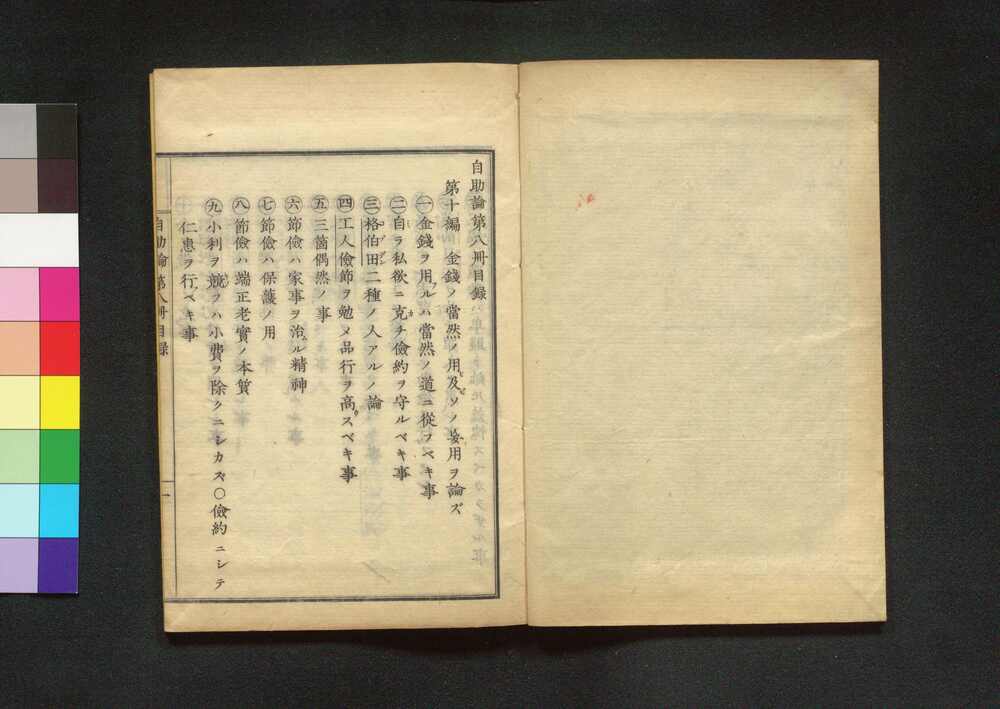 自助論第八冊目録
第十編 金錢ノ當然ノ用及ビソノ妄用ヲ論ズ
㊀金錢ヲ用ルハ當然ノ道ニ從フベキ事
㊁自ラ私欲ニ克チ儉約ヲ守ルベキ事
㊂格伯田二種ノ人アルノ論
㊃工人儉節ヲ勉メ品行ヲ高スベキ事
㊄三箇偶然ノ事
㊅節儉ハ家事ヲ治ル精神
㊆節儉ハ保護ノ用
㊇節儉ハ端正老實ノ本質
㊈小利ヲ競フハ小費ヲ除クニシカズ○儉約ニシテ
仁惠ヲ行ベキ事
自助論 第八冊目録 一